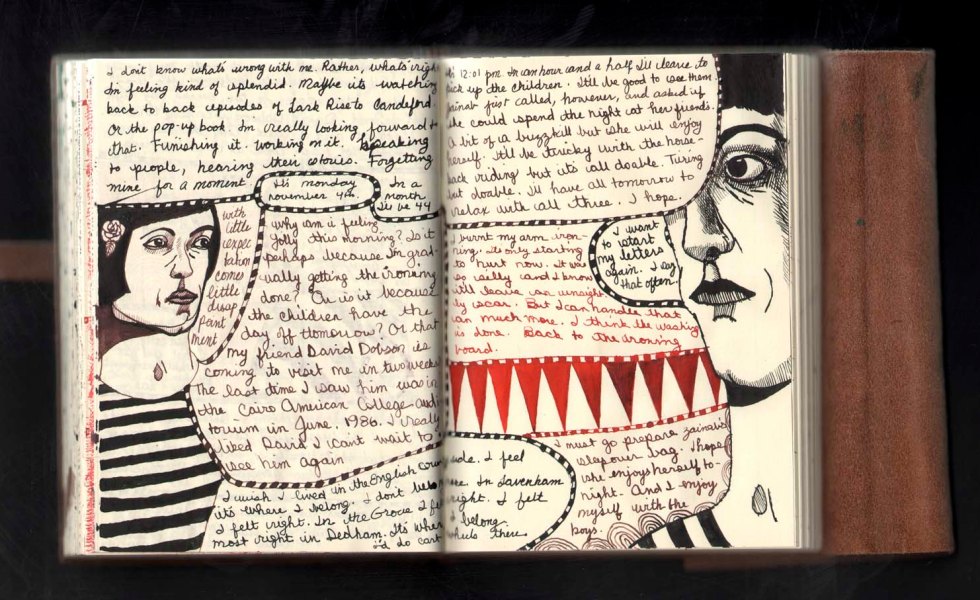 I don't know what's wrong with me. Rather, what's right
I'm feeling kind of splendid. Maybe its watching
back to back episodes of Lark Rise to Candleford.
Or the pop-up book. I'm really looking forward to
that. Furnishing it. Working on it. Speaking
to people, hearing their stories. Forgetting
mine for a moment.
It's monday
november 4th.
In a
month
I'll be 44
with
little
expec
tation
comes
little
disap
point
ment
why am i feeling
jolly this morning? Is it
perhaps because I'm grad-
ually getting the ironing
done? Or is it because
the children have the
day off tomorrow? Or that
my friend David Dobson is
coming to visit me in two weeks
The last time I saw him was in
the Cairo American College and
torium in June, 1986. I really
liked David. I can't wait to
see him again
I wish I lived in the English coun
it's where I belong. I don't belo
I felt right. In the Grove I fe
most right in Dedham. Its wher
i'd do cart
12:01 pm. In an hour and a half I'll leave to
pick up the children. It'll be good to see them
first called, however, and asked if
she could spend the night at her friends.
A bit of a buzzkill but she will enjoy
herself. It'll be tricky with the horse-
back riding but its all doable. Tiring
but doable. I'll have all tomorrow to
relax with all three. I hope.
I want
to start
my letters
again. I say
that often.
I burnt my arm iron-
ning. Its only starting
to hurt now. It was
so silly and I know
it'll leave an unsight
ly scar. But I can handle that
can much more. I think the washing
is done. Back to the ironing
board.
side. I feel
ere. In Lavenham
right. I felt
I belong.
wheels there
I must go prepare Zaina's
sleepover bag. I hope
she enjoys herself to-
night. And I enjoy
myself with the
boys.